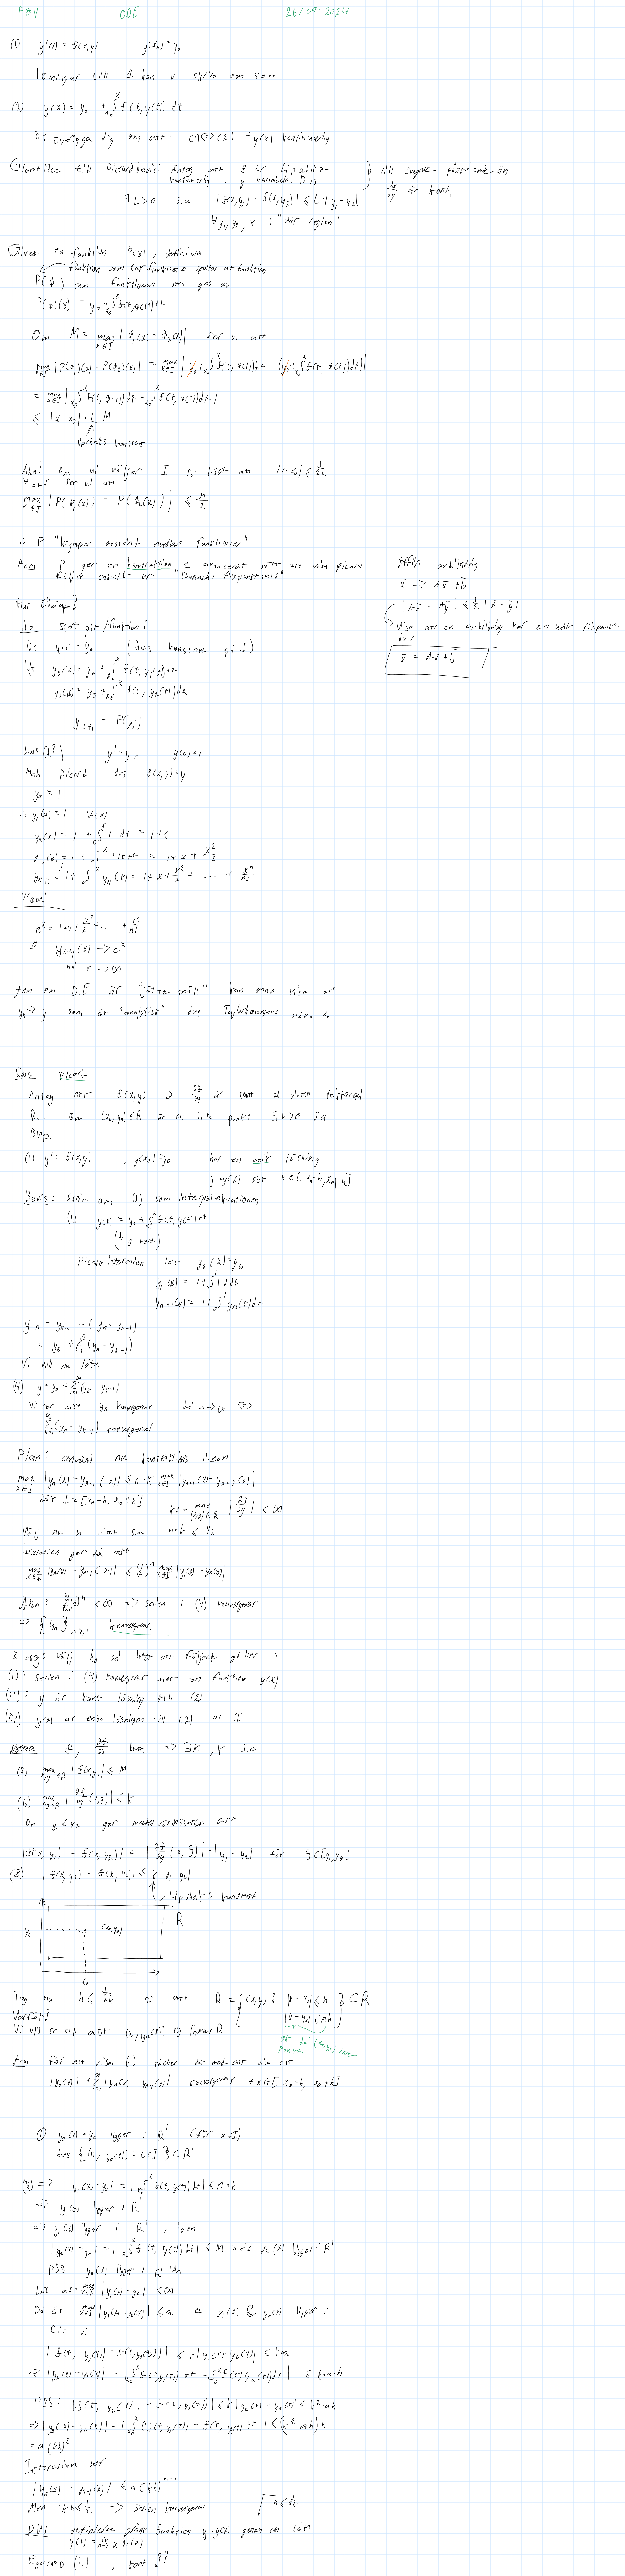 F#11 ODE 26/09-2024
(1) y'(x) = f(x,y) y(x₀) = y₀
lösningar till 1 kan vi skriva om som
(2) y(x) = y₀ + ₓ₀∫ˣ f(t, y(t)) dt
Ö: övertyga dig om att (1)<=>(2) + y(x) kontinuerlig
Grundidee till Picardbevis: Antag att f är Lipschitz-
kontinuerlig i y-variabeln. Dvs
∃ L>0 s.a |f(x,y₁) - f(x,y₂)| ≤ L·|y₁-y₂|
∀y₁,y₂, x i "vår region"
är kont.
Given en funktion ϕ(x), definiera
funktion som tar funktion & spottar ut funktion
P(ϕ) som funktionen som ges av
P(ϕ)(x) = y₀ + ₓ₀∫ˣ f(t,ϕ(t)) dt
Om M = max x∈I |ϕ₁(x) - ϕ₂(x)| ser vi att
max x∈I |P(ϕ₁)(x) - P(ϕ₂)(x)| = max x∈I |y₀ + ₓ₀∫ˣ f(t, ϕ(t))dt - (y₀ + ₓ₀∫ˣ f(t, ϕ(t))dt)|
= max x∈I |ₓ₀∫ˣ f(t, ϕ(t))dt - ₓ₀∫ˣ f(t, ϕ(t))dt|
≤ |x-x₀|·L M
lipschitz konstant
Aha! om vi väljer I så litet att |x-x₀| ≤ 1/2L
∀x∈I ser vi att
max x∈I |P(ϕ₁(x)) - P(ϕ₂(x))| ≤ M/2
∴ P "krymper avstånd mellan funktioner"
Anm P ger en kontraktion & avancerat sätt att visa picard
följer enkelt ur "Banachs fixpunktsats"
Affin avbildning
x̄ -> Ax̄ + b̄
|Ax̄ - Aȳ| ≤ ½ |x̄ - ȳ|
Visa att en avbildning har en unik fixpunkt
dvs
x̄ = Ax̄ + b̄
Hur tillämpa?
Jo start pkt/funktion:
låt y₁(x) = y₀ (dvs konstant på I)
låt y₂(x) = y₀ + ₓ₀∫ˣ f(t, y₁(t)) dt
y₃(x) = y₀ + ₓ₀∫ˣ f(t, y₂(t)) dx
yᵢ₊₁ = P(yᵢ)
Lös(!?) y' = y, y(0) = 1
mah picard dvs f(x,y) = y
y₀ = 1
∴ y₁(x) = 1 ∀(x)
y₂(x) = 1 + ₀∫ˣ 1 dt = 1+x
y₃(x) = 1 + ₀∫ˣ 1+t dt = 1 + x + x²/2
yₙ₊₁ = 1 + ₀∫ˣ yₙ(t) = 1 + x + x²/2 + ..... + xⁿ/n!
Wow!
eˣ = 1+x+x²/2+... + xⁿ/n!
& yₙ₊₁(x) -> eˣ
då n -> ∞
Anm om D.E är "jätte snäll" kan man visa att
yₙ -> y som är "analytisk" dvs nära x₀
Sats picard
Antag att f(x,y) & ∂f/∂y är kont på sluten rektangel
R. Om (x₀, y₀) ∈ R är en inre punkt ∃ h>0 s.a
BVP:
(1) y' = f(x,y) ∴ y(x₀) = y₀ har en unik lösning
y = y(x) för x∈[x₀-h, x₀+h]
Bevis: skriv om (1) som integralekvationen
(2) y(x) = y₀ + ₓ₀∫ˣ f(t, y(t)) dt
(+ y kont)
Picard iteration låt y₀(x) = y₀
y₁(x) = 1 + ₀∫ 1 dt
yₙ₊₁(x) = 1 + ₀∫ yₙ(t) dt
yₙ = yₙ₋₁ + (yₙ - yₙ₋₁)
= y₀ + Σ (yₙ - yₖ₋₁)
Vi vill nu låta
(4) y = y₀ + Σ (yₖ - yₖ₋₁)
Vi ser att yₙ konvergerar då n->∞ <=>
Σ (yₙ - yₖ₋₁) konvergerar
Plan: använd nu kontraktions ideen
max x∈I |yₙ(x) - yₙ₋₁(x)| ≤ h·K max x∈I |yₙ₋₁(x) - yₙ₋₂(x)|
där I = [x₀-h, x₀+h] K := max (x,y)∈R |∂f/∂y| < ∞
Välj nu h litet s.a h·K ≤ ½
Iteration ger då att
max x∈I |yₙ(x) - yₙ₋₁(x)| ≤ (½)ⁿ max x∈I |y₁(x) - y₀(x)|
Aha! Σ(½)ⁿ < ∞ => serien i (4) konvergerar
=> {yₙ} n≥1 konvergerar.
3 steg: välj h₀ så litet att följande gäller:
(i): serien i (4) konvergerar mot en funktion y(x)
(ii): y är kont lösning till (2)
(iii) y(x) är enda lösningen till (2) på I
Notera f, ∂f/∂y kont. => ∃M, K s.a
(5) max x,y∈R |f(x,y)| ≤ M
(6) max x,y∈R |∂f/∂y (x,y)| ≤ K
Om y₁ ≤ y₂ ger medelvärdessatsen att
|f(x, y₁) - f(x,y₂)| = |∂f/∂y (x, ξ)|·|y₁ - y₂| för ξ∈[y₁,y₂]
(8) |f(x,y₁) - f(x,y₂)| ≤ K|y₁-y₂|
Lipsheit s konstant
R
y₀ (x₀,y₀)
x₀
Tag nu h ≤ 1/2K så att R' = {(x,y): |x-x₀| ≤ h
|y-y₀| ≤ Mh} ⊂ R
Varför?
Vi vill se till att (x, yₙ(x)) ej lämnar R
ok då (x₀,y₀) inre
punkt
Anm för att visa (i) räcker det med att visa att
|y₀(x)| + Σ |yₙ(x) - yₙ₋₁(x)| konvergerar ∀x∈[x₀-h, x₀+h]
① y₀(x) = y₀ ligger i R' (för x∈I)
dvs {(t, y₀(t)): t∈I} ⊂ R'
(5) => |y₁(x) - y₀| = |ₓ₀∫ˣ f(t, y(t)) dt| ≤ M·h
=> y₁(x) ligger i R'
=> y₁(x) ligger i R', igen
|y₂(x) - y₀| = |ₓ₀∫ˣ f(t, y(t)) dt| ≤ M h => y₂(x) ligger i R'
PSS: yₙ(x) ligger i R' ∀n
Låt a := max x∈I |y₁(x) - y₀| < ∞
Då är max x∈I |y₁(x) - y₀(x)| ≤ a & y₁(x) & y₀(x) ligger i
får vi
|f(t, y₁(t)) - f(t, y₀(t))| ≤ K|y₁(t) - y₀(t)| ≤ K·a
=> |y₂(x) - y₁(x)| = |ₓ₀∫ˣ f(t,y₁(t)) dt - ₓ₀∫ˣ f(t, y₀(t)) dt| ≤ K·a·h
PSS: |f(t, y₂(t)) - f(t, y₁(t))| ≤ K|y₂(t) - y₁(t)| ≤ K²·ah
=> |y₃(x) - y₂(x)| = |ₓ₀∫ˣ (f(t, y₂(t)) - f(t, y₁(t)) dt| ≤ (K² ah) h
= a(Kh)²
Iteration ser
|yₙ(x) - yₙ₋₁(x)| ≤ a(Kh)ⁿ⁻¹
Men Kh ≤ ½ => serien konvergerar h ≤ 1/2K
DVS definiera gräns funktion y = y(x) genom att låta
y(x) = lim n->∞ yₙ(x)
Egenskap (ii) , kont ??